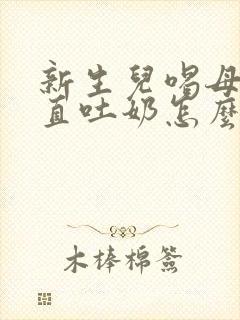 新生兒喝母
直吐奶怎麼
木棒棉簽